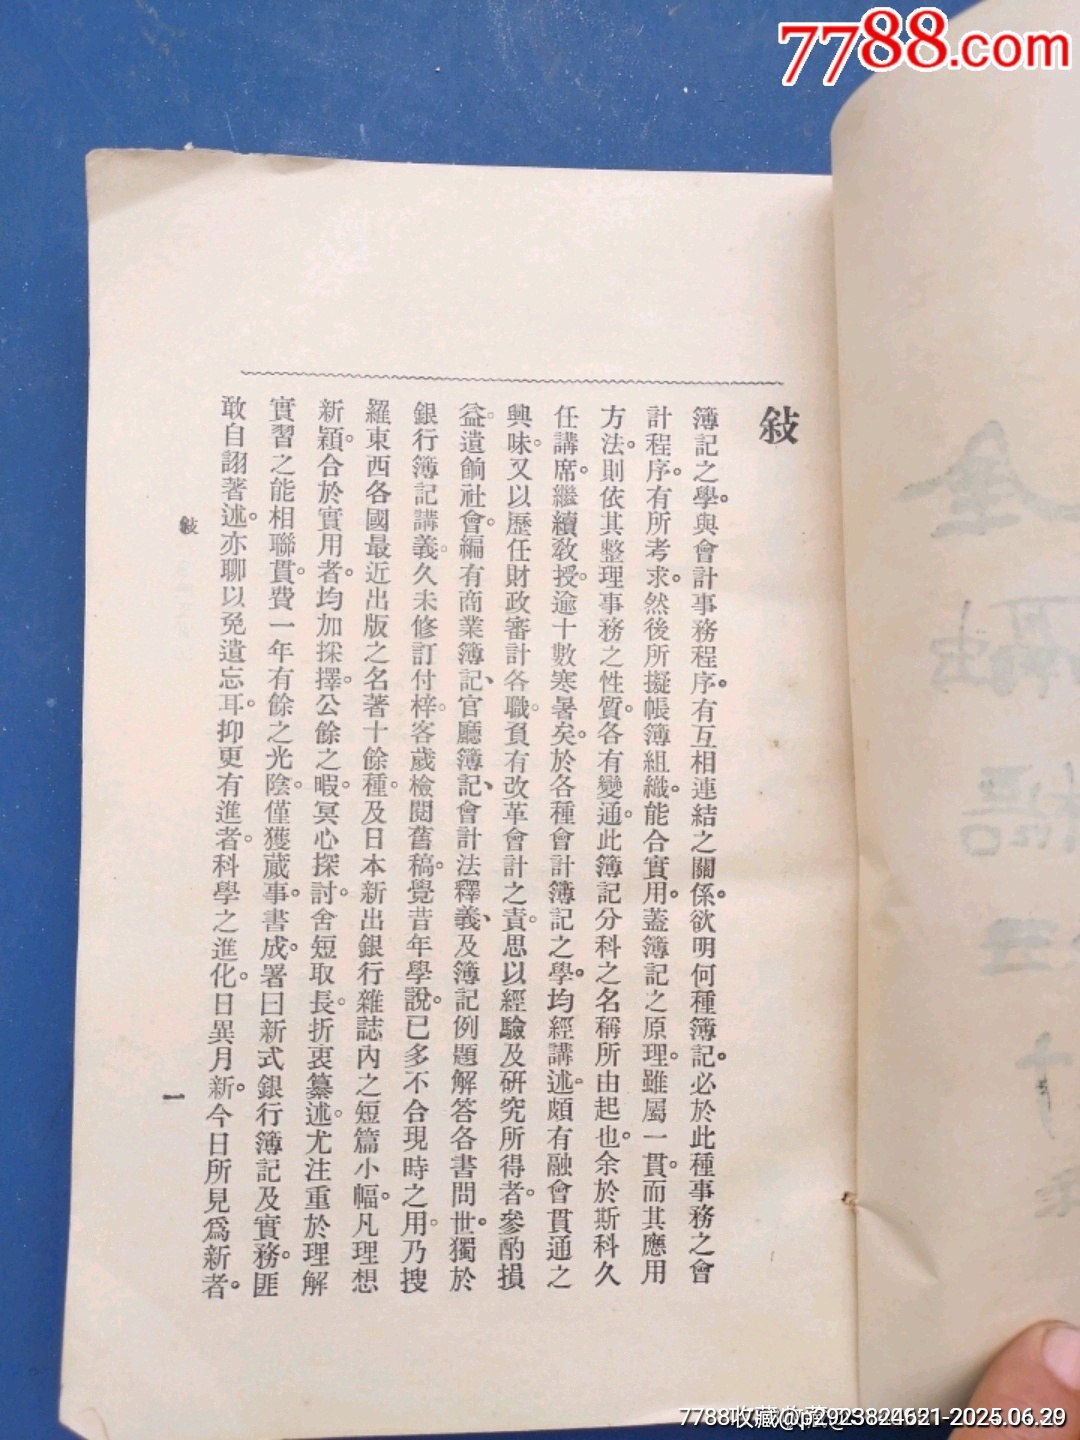 7788.com
敍
簿記之學。與會計事務程序。有互相連結之關係。欲明何種簿記。必於此種事務之會
計程序。有所考求。然後所擬帳簿組織。能合實用。蓋簿記之原理。雖屬一貫。而其應用
方法。則依其整理事務之性質。各有變通。此簿記分科之名稱所由起也。余於斯科久
任講席。繼續教授。逾十數寒暑矣。於各種會計簿記之學。均經講述。頗有融會貫通之
興味。又以歷任財政審計各職。負有改革會計之責。思以經驗及研究所得者。參酌損
益。遺餉社會。編有商業簿記、官廳簿記、會計法釋義、及簿記例題解答各書問世。獨於
銀行簿記講義。久未修訂付梓。客歲檢閱舊稿。覺昔年學說。已多不合現時之用。乃搜
羅東西各國最近出版之名著十餘種。及日本新出銀行雜誌內之短篇小幅。凡理想
新穎。合於實用者。均加採擇。公餘之暇。冥心探討。舍短取長。折衷纂述。尤注重於理解
實習之能相聯貫。費一年有餘之光陰。僅獲蕆事。書成。署曰新式銀行簿記及實務。匪
敢自詡著述。亦聊以免遺忘耳。抑更有進者。科學之進化。日異月新。今日所見爲新者。
敍
一
7788收藏@p2923824621-2025.06.29